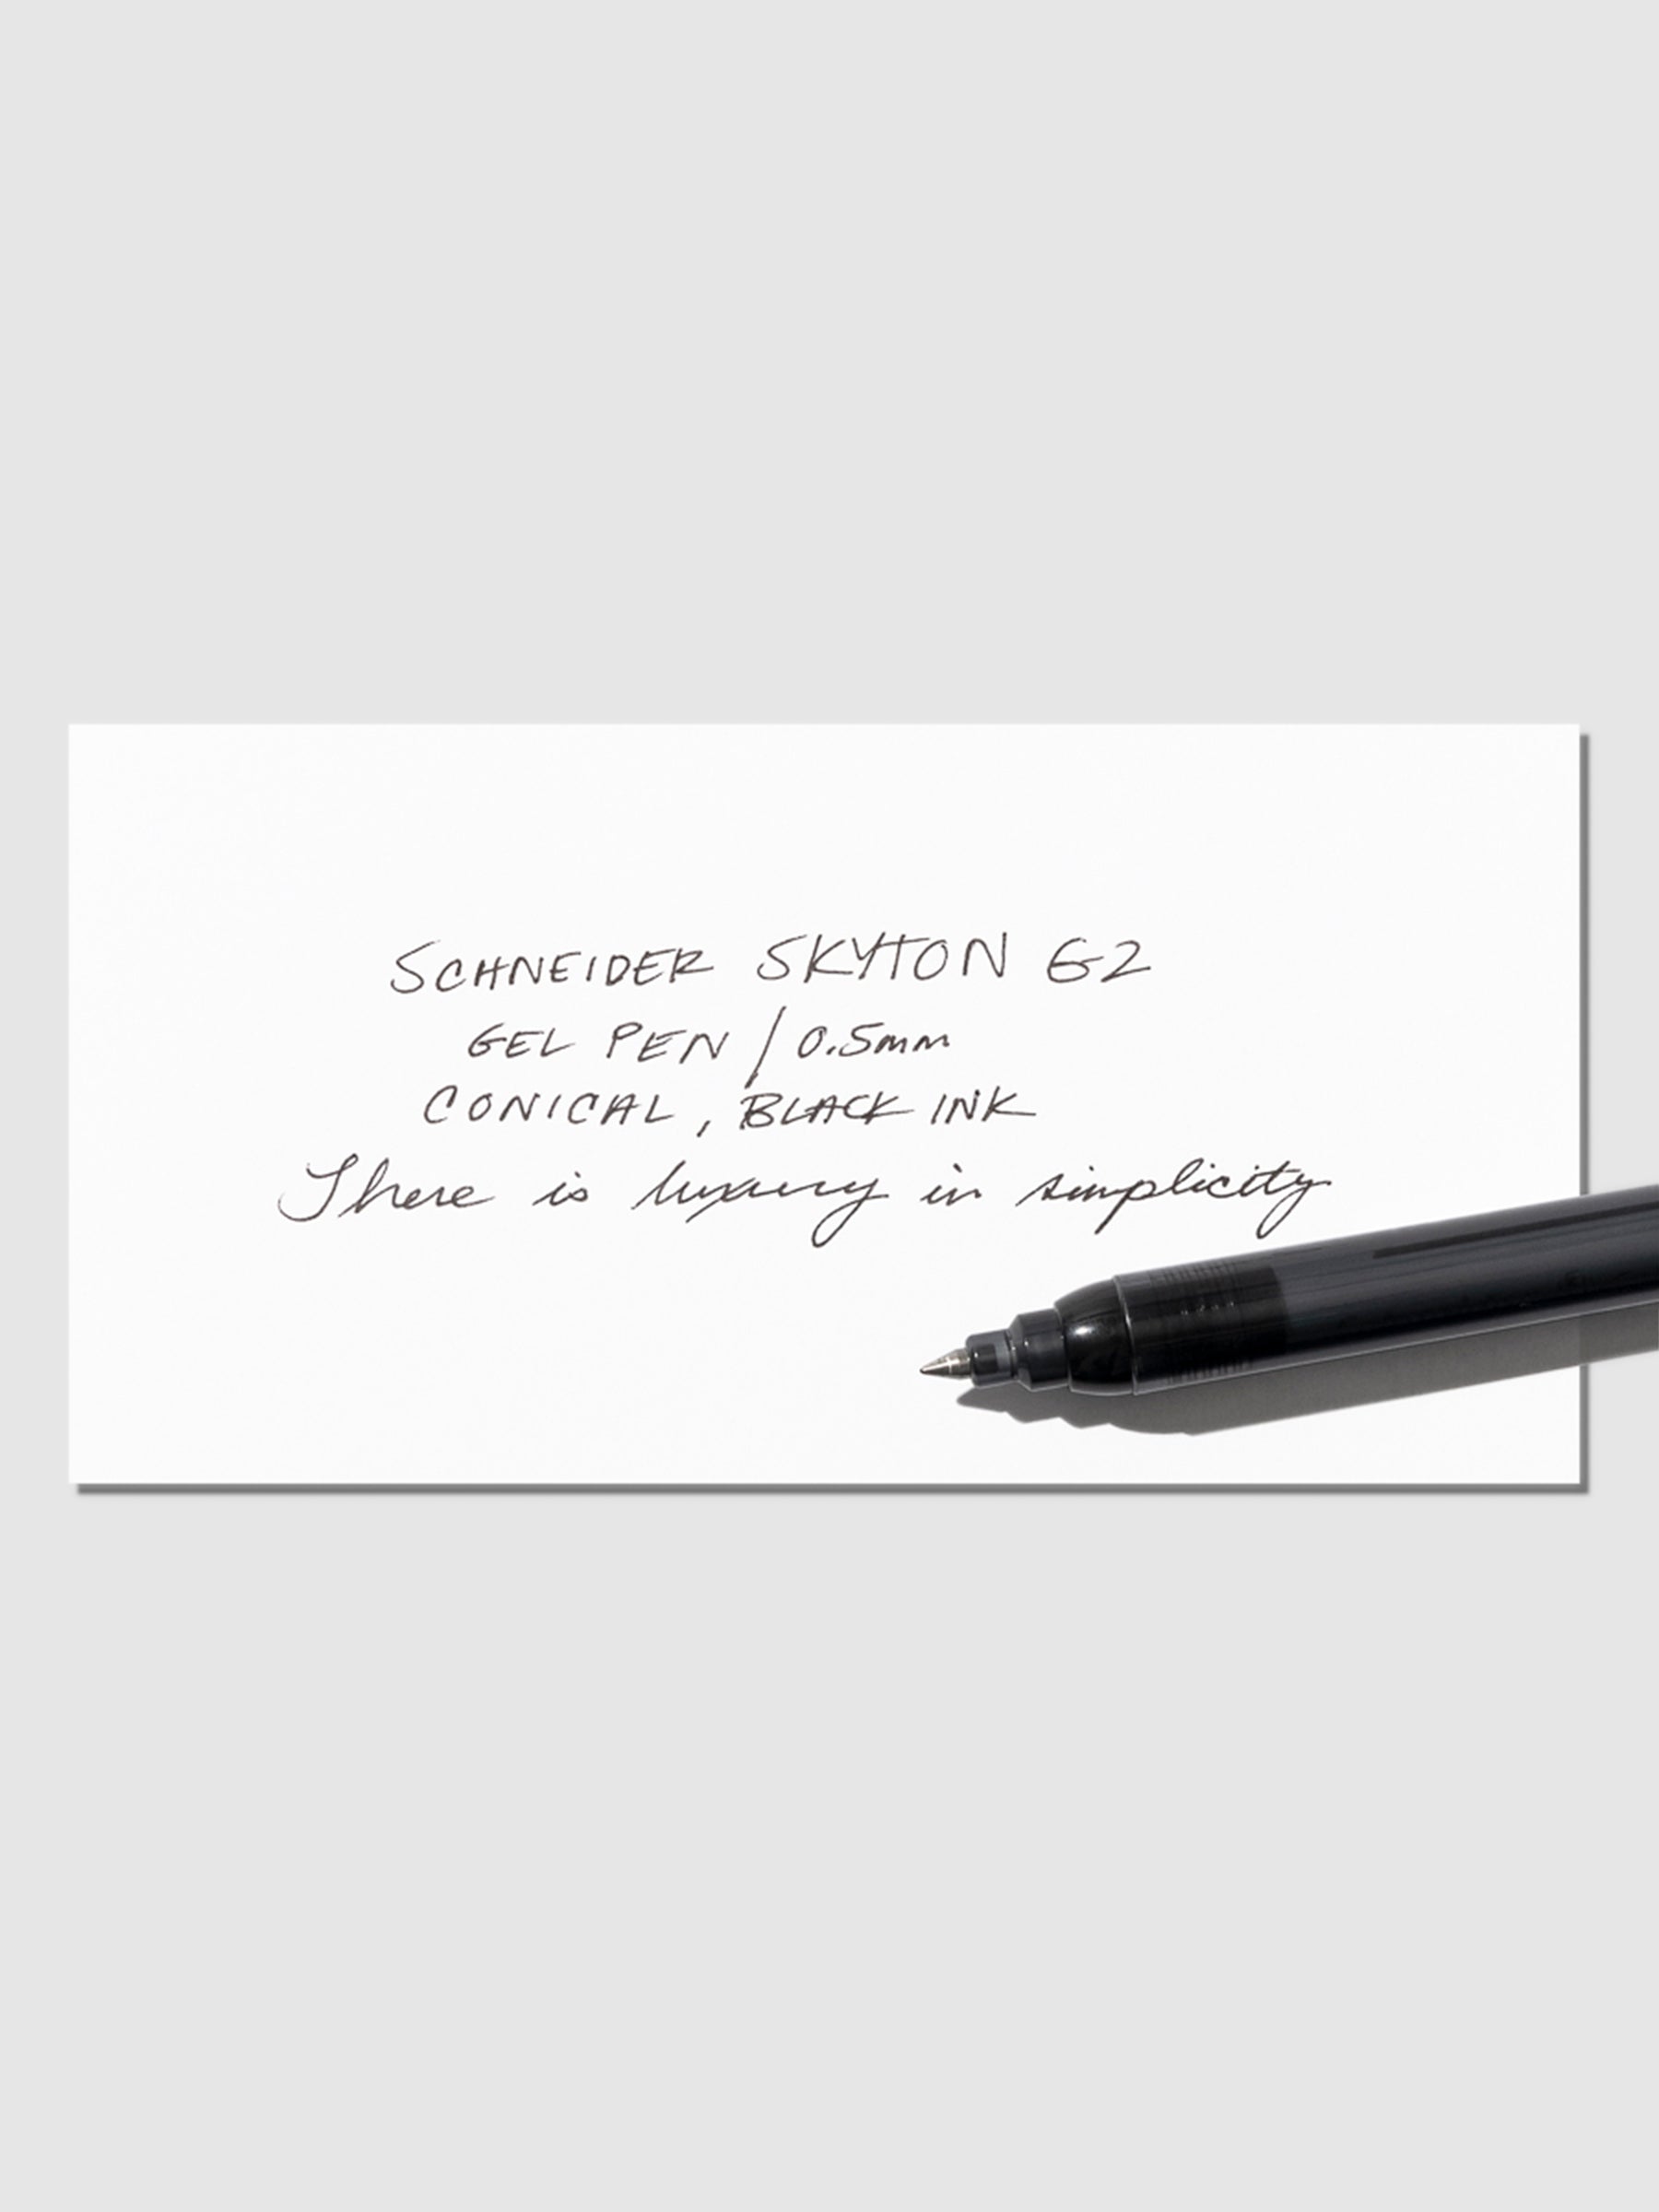 SCHNEIDER SKYTON G2
GEL PEN / 0.5mm
CONICAL, BLACK INK
There is luxury in simplicity